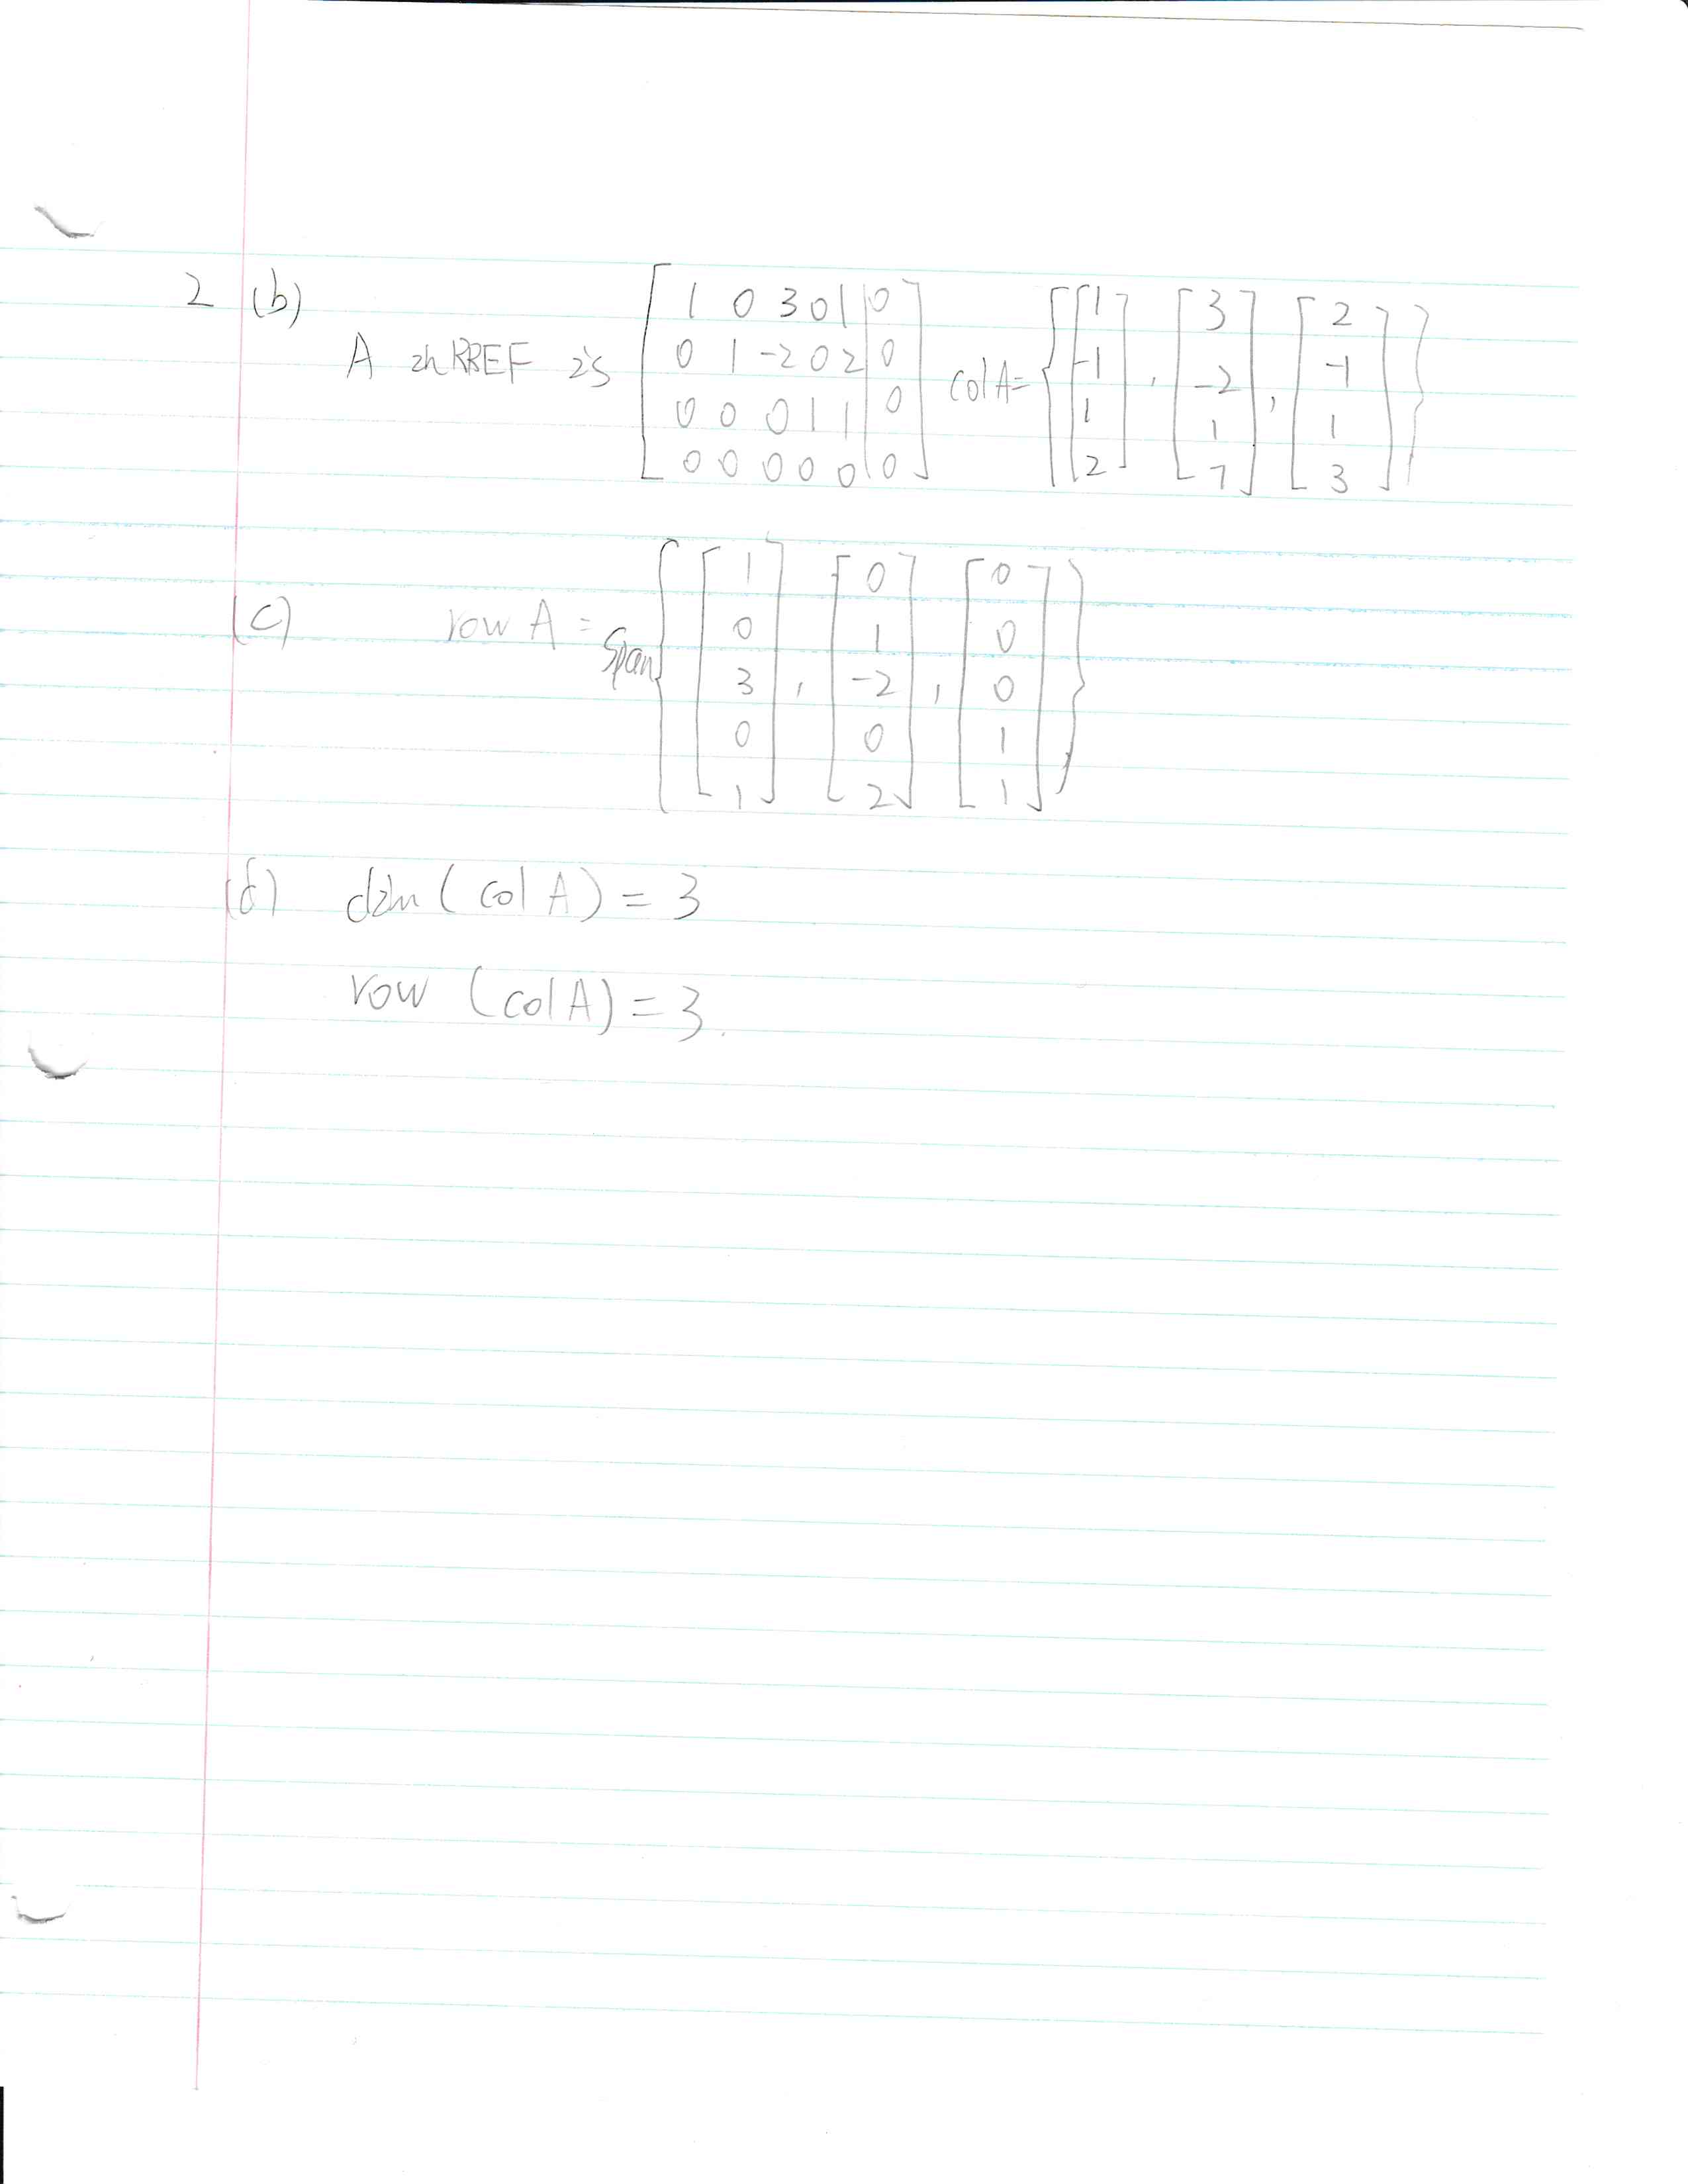 2 (b)
A in RREF is [1 0 3 0 1 | 0; 0 1 -2 0 2 | 0; 0 0 0 1 1 | 0; 0 0 0 0 0 | 0] col A = {[1; -1; 1; 2], [3; -2; 1; 7], [2; -1; 1; 3]}
(c) row A = Span {[1; 0; 3; 0; 1], [0; 1; -2; 0; 2], [0; 0; 0; 1; 1]}
dim (col A) = 3
row (col A) = 3.